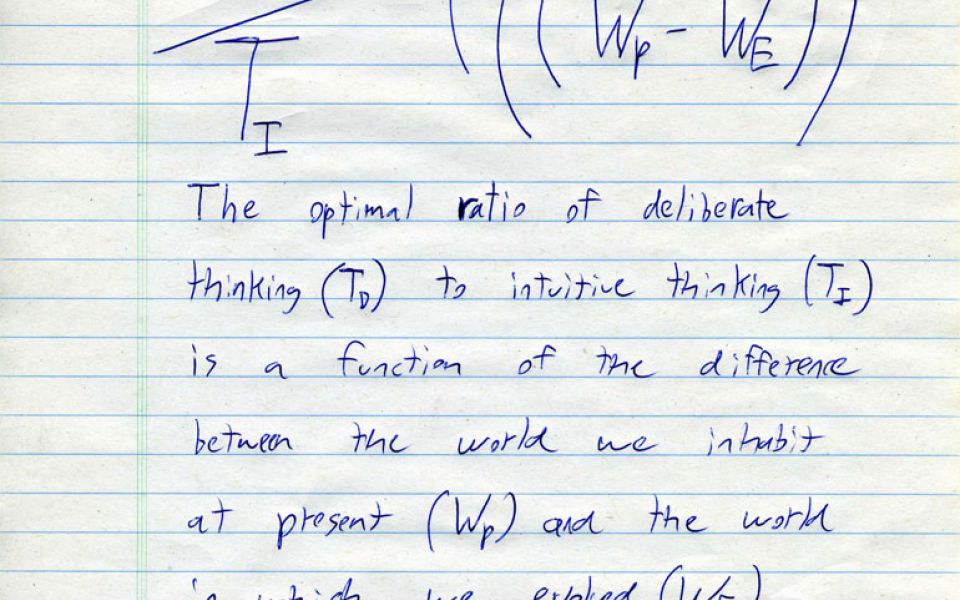 ((W_P - W_E))
T_I
The optimal ratio of deliberate
thinking (T_D) to intuitive thinking (T_I)
is a function of the difference
between the world we inhabit
at present (W_P) and the world
in which we evolved (W_E)